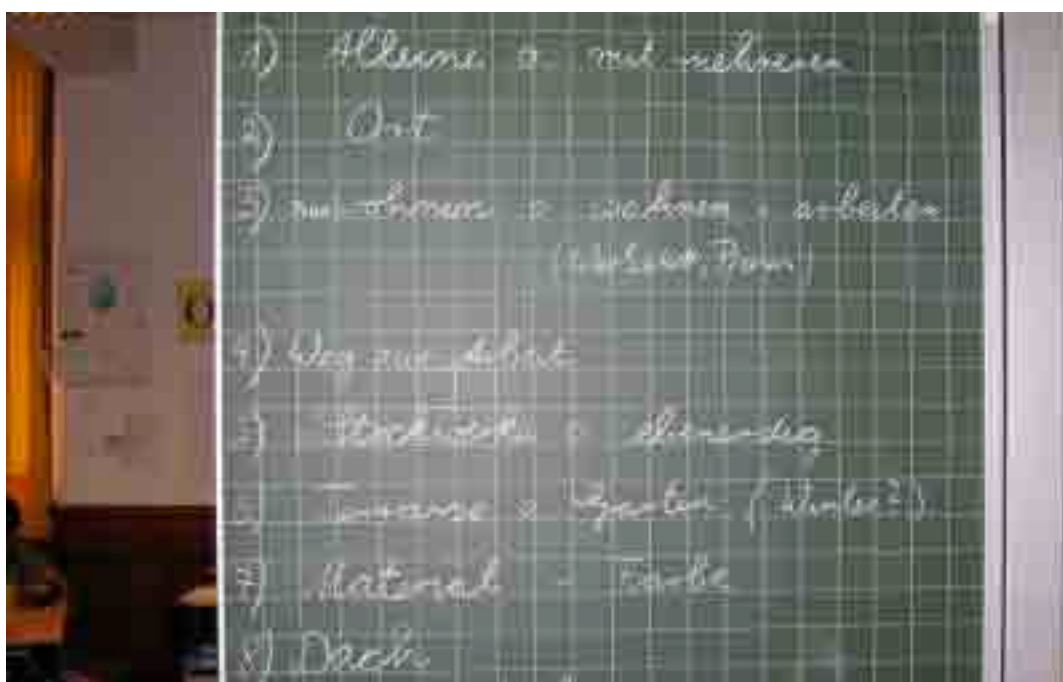 1) Alleine o mit mehreren
2) Ort
3) nur wohnen o wohnen + arbeiten
4) Weg zur Arbeit
5) Stockwerk o ebenerdig
6) Terrasse o Garten (Winter?)
7) Material - Farbe
8) Dach